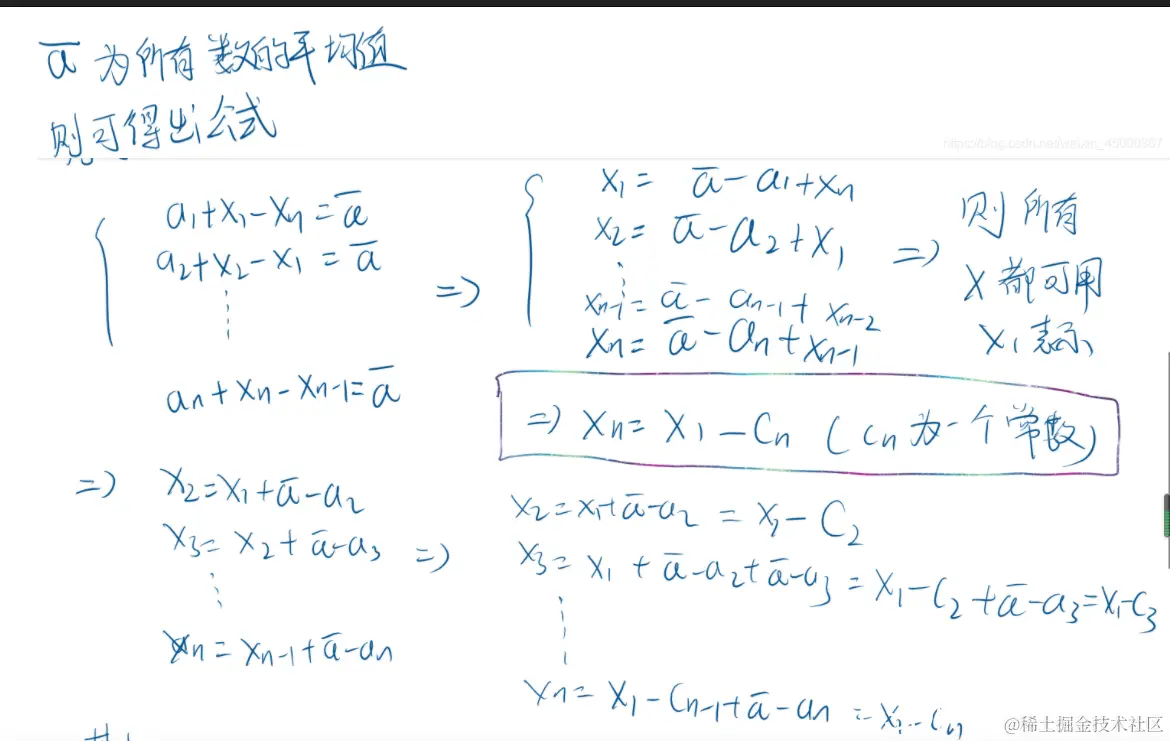 a̅ 为所有数的平均值
则可得出公式
https://blog.csdn.net/weixin_45000867
a₁+x₁-xₙ=a̅
a₂+x₂-x₁=a̅
⋮
aₙ+xₙ-xₙ₋₁=a̅
=>
x₁= a̅-a₁+xₙ
x₂= a̅-a₂+x₁
⋮
xₙ₋₁= a̅-aₙ₋₁+xₙ₋₂
xₙ= a̅-aₙ+xₙ₋₁
=>
则所有
x都可用
x₁表示
=> xₙ= x₁-cₙ (cₙ为一个常数)
=> x₂=x₁+a̅-a₂
x₃= x₂+a̅-a₃
⋮
xₙ= xₙ₋₁+a̅-aₙ
=>
x₂=x₁+a̅-a₂ = x₁-c₂
x₃= x₁+a̅-a₂+a̅-a₃ = x₁-c₂+a̅-a₃=x₁-c₃
⋮
xₙ= x₁-cₙ₋₁+a̅-aₙ = x₁-cₙ
@稀土掘金技术社区